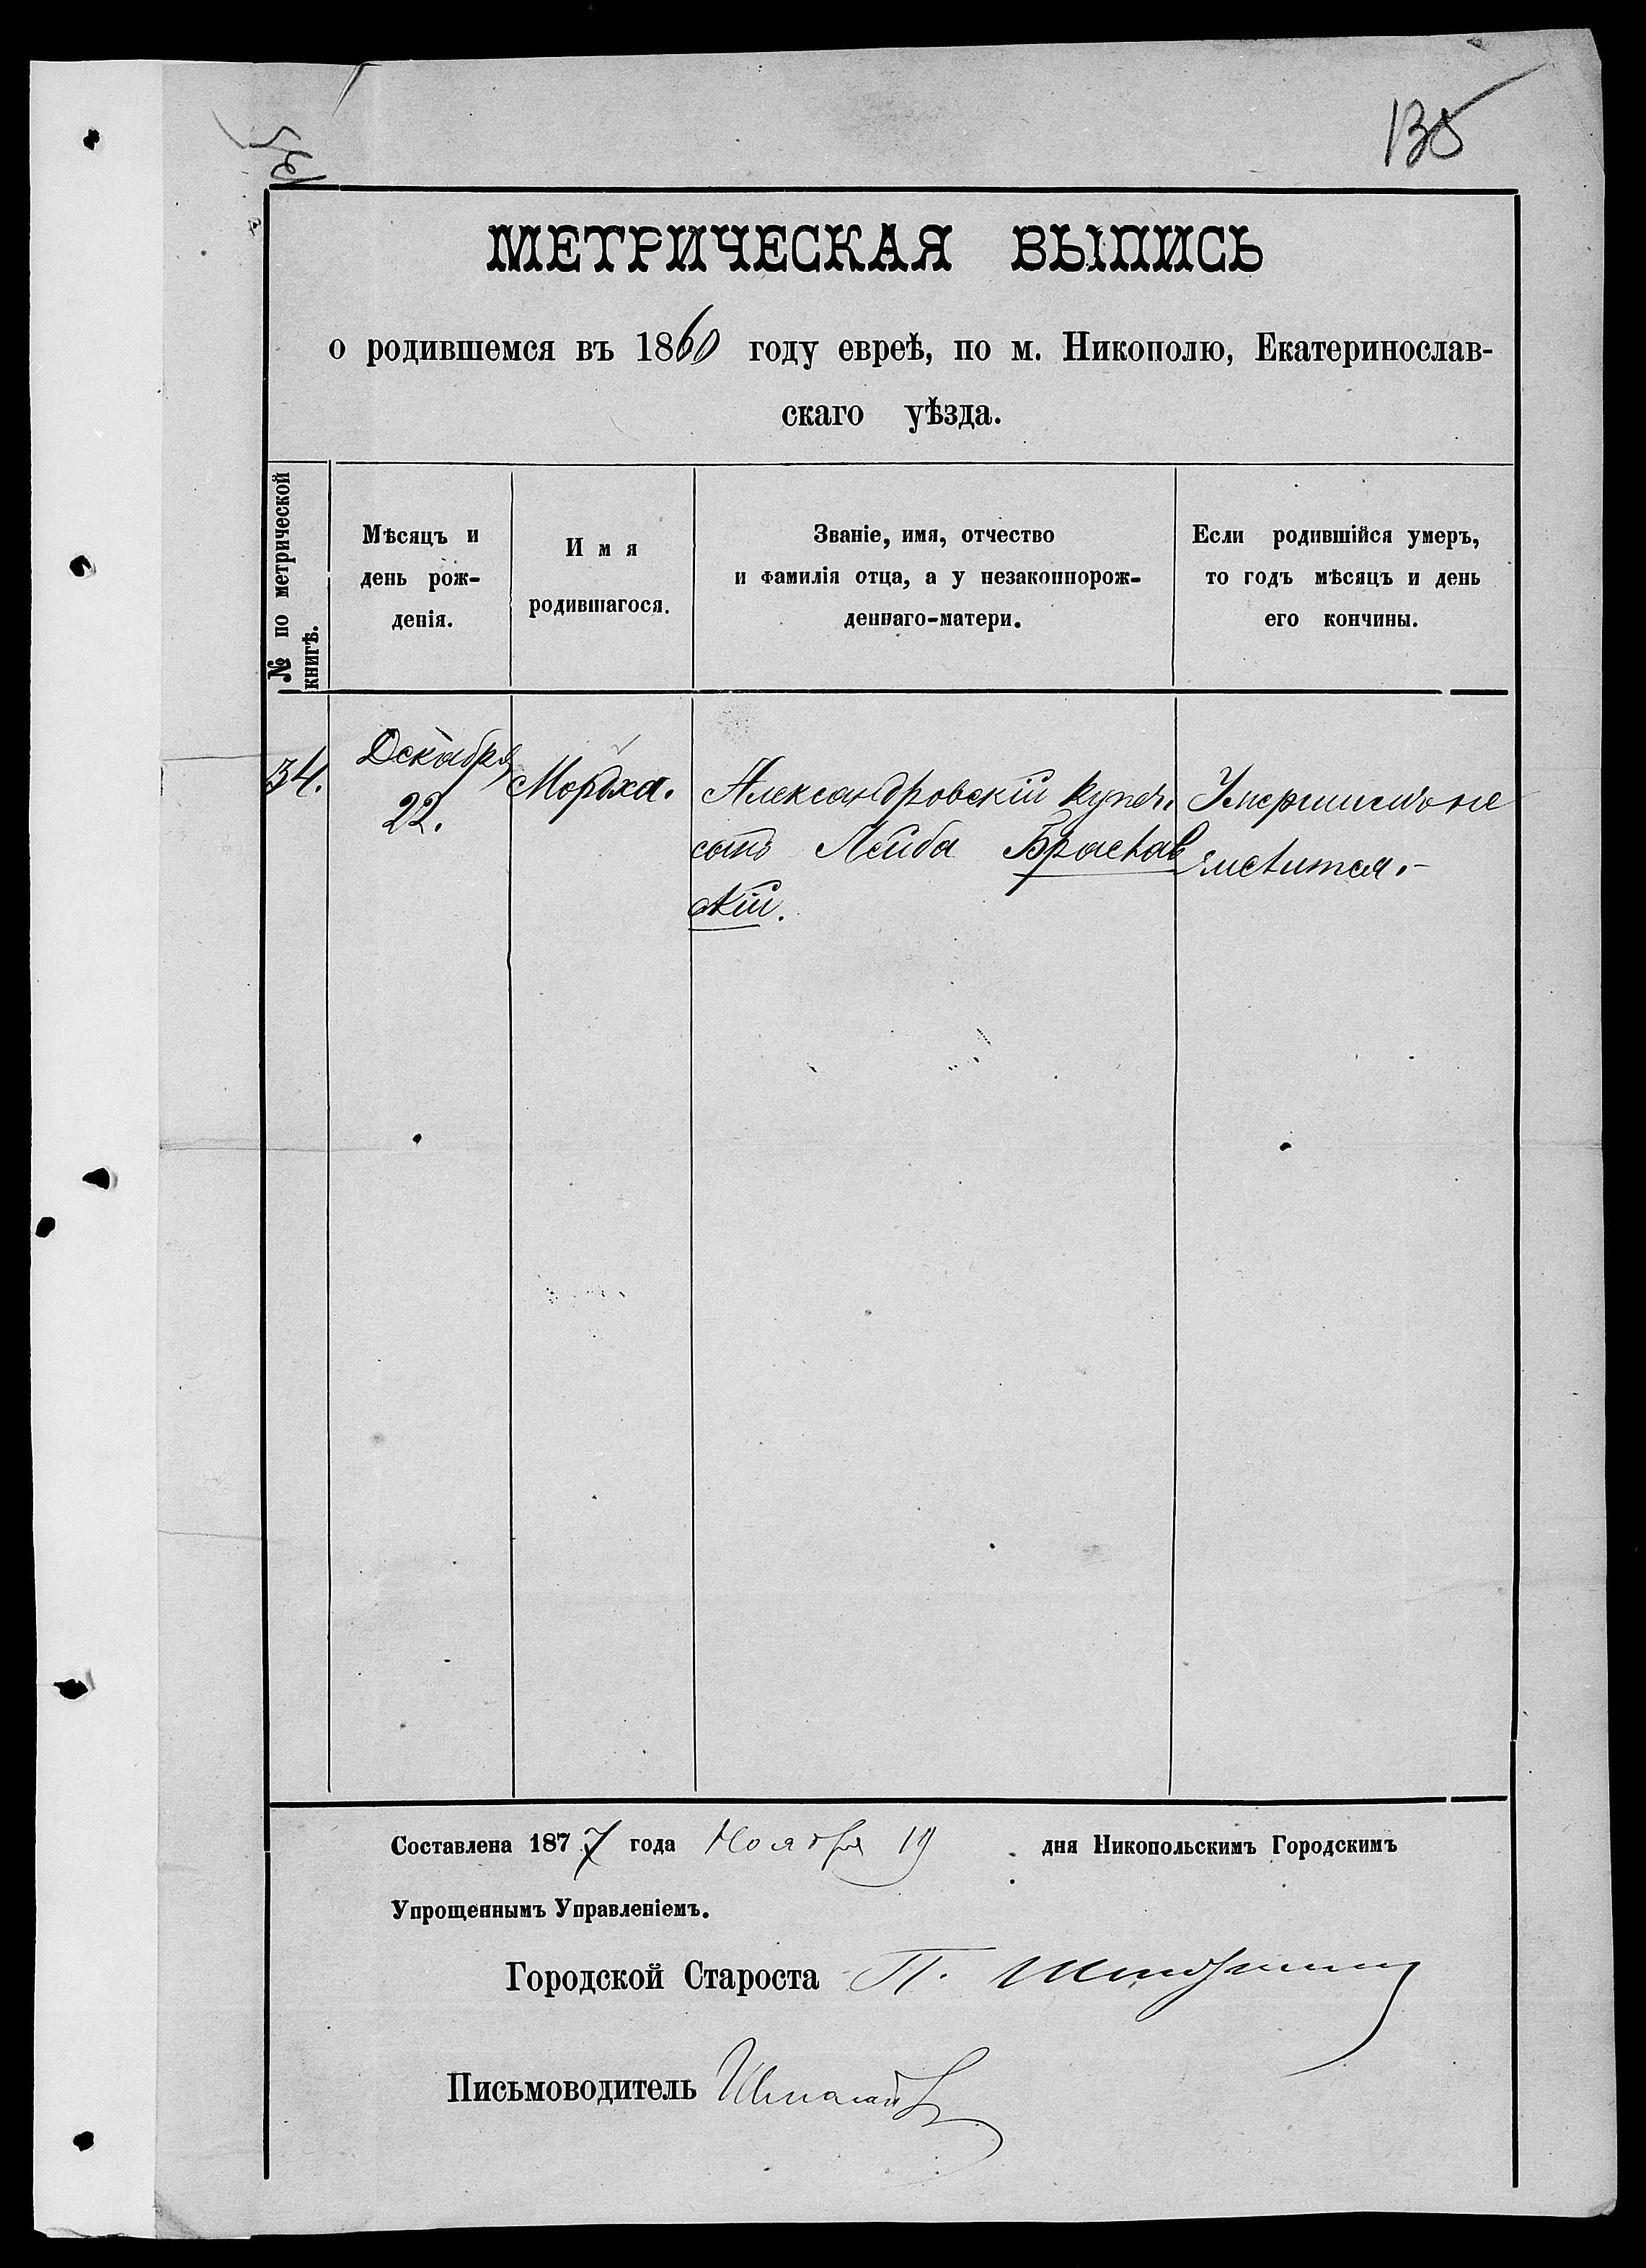 135
МЕТРИЧЕСКАЯ ВЫПИСЬ
о родившемся въ 1860 году евреѣ, по м. Никополю, Екатеринослав-
скаго уѣзда.
№ по метрической
книгѣ.
Мѣсяцъ и
день рож-
денія.
Имя
родившагося.
Званіе, имя, отчество
и фамилія отца, а у незаконнорож-
деннаго-матери.
Если родившійся умеръ,
то годъ мѣсяцъ и день
его кончины.
34.
Декабря
22.
Мордха.
Александровскій купеч.
сынъ Лейба Браслав
скій.
Умершимъ не
числится.-
Составлена 1877 года Ноября 19 дня Никопольскимъ Городскимъ
Упрощеннымъ Управленіемъ.
Городской Староста П.
Письмоводитель